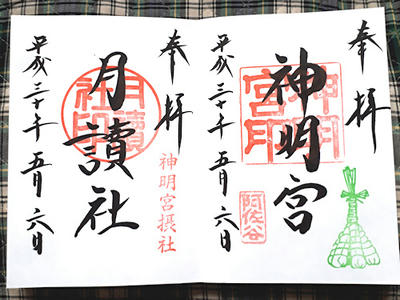 奉拝
神明宮
神明宮印
阿佐谷
平成三十年五月六日
奉拝
神明宮摂社
月讀社
月讀社印
平成三十年五月六日